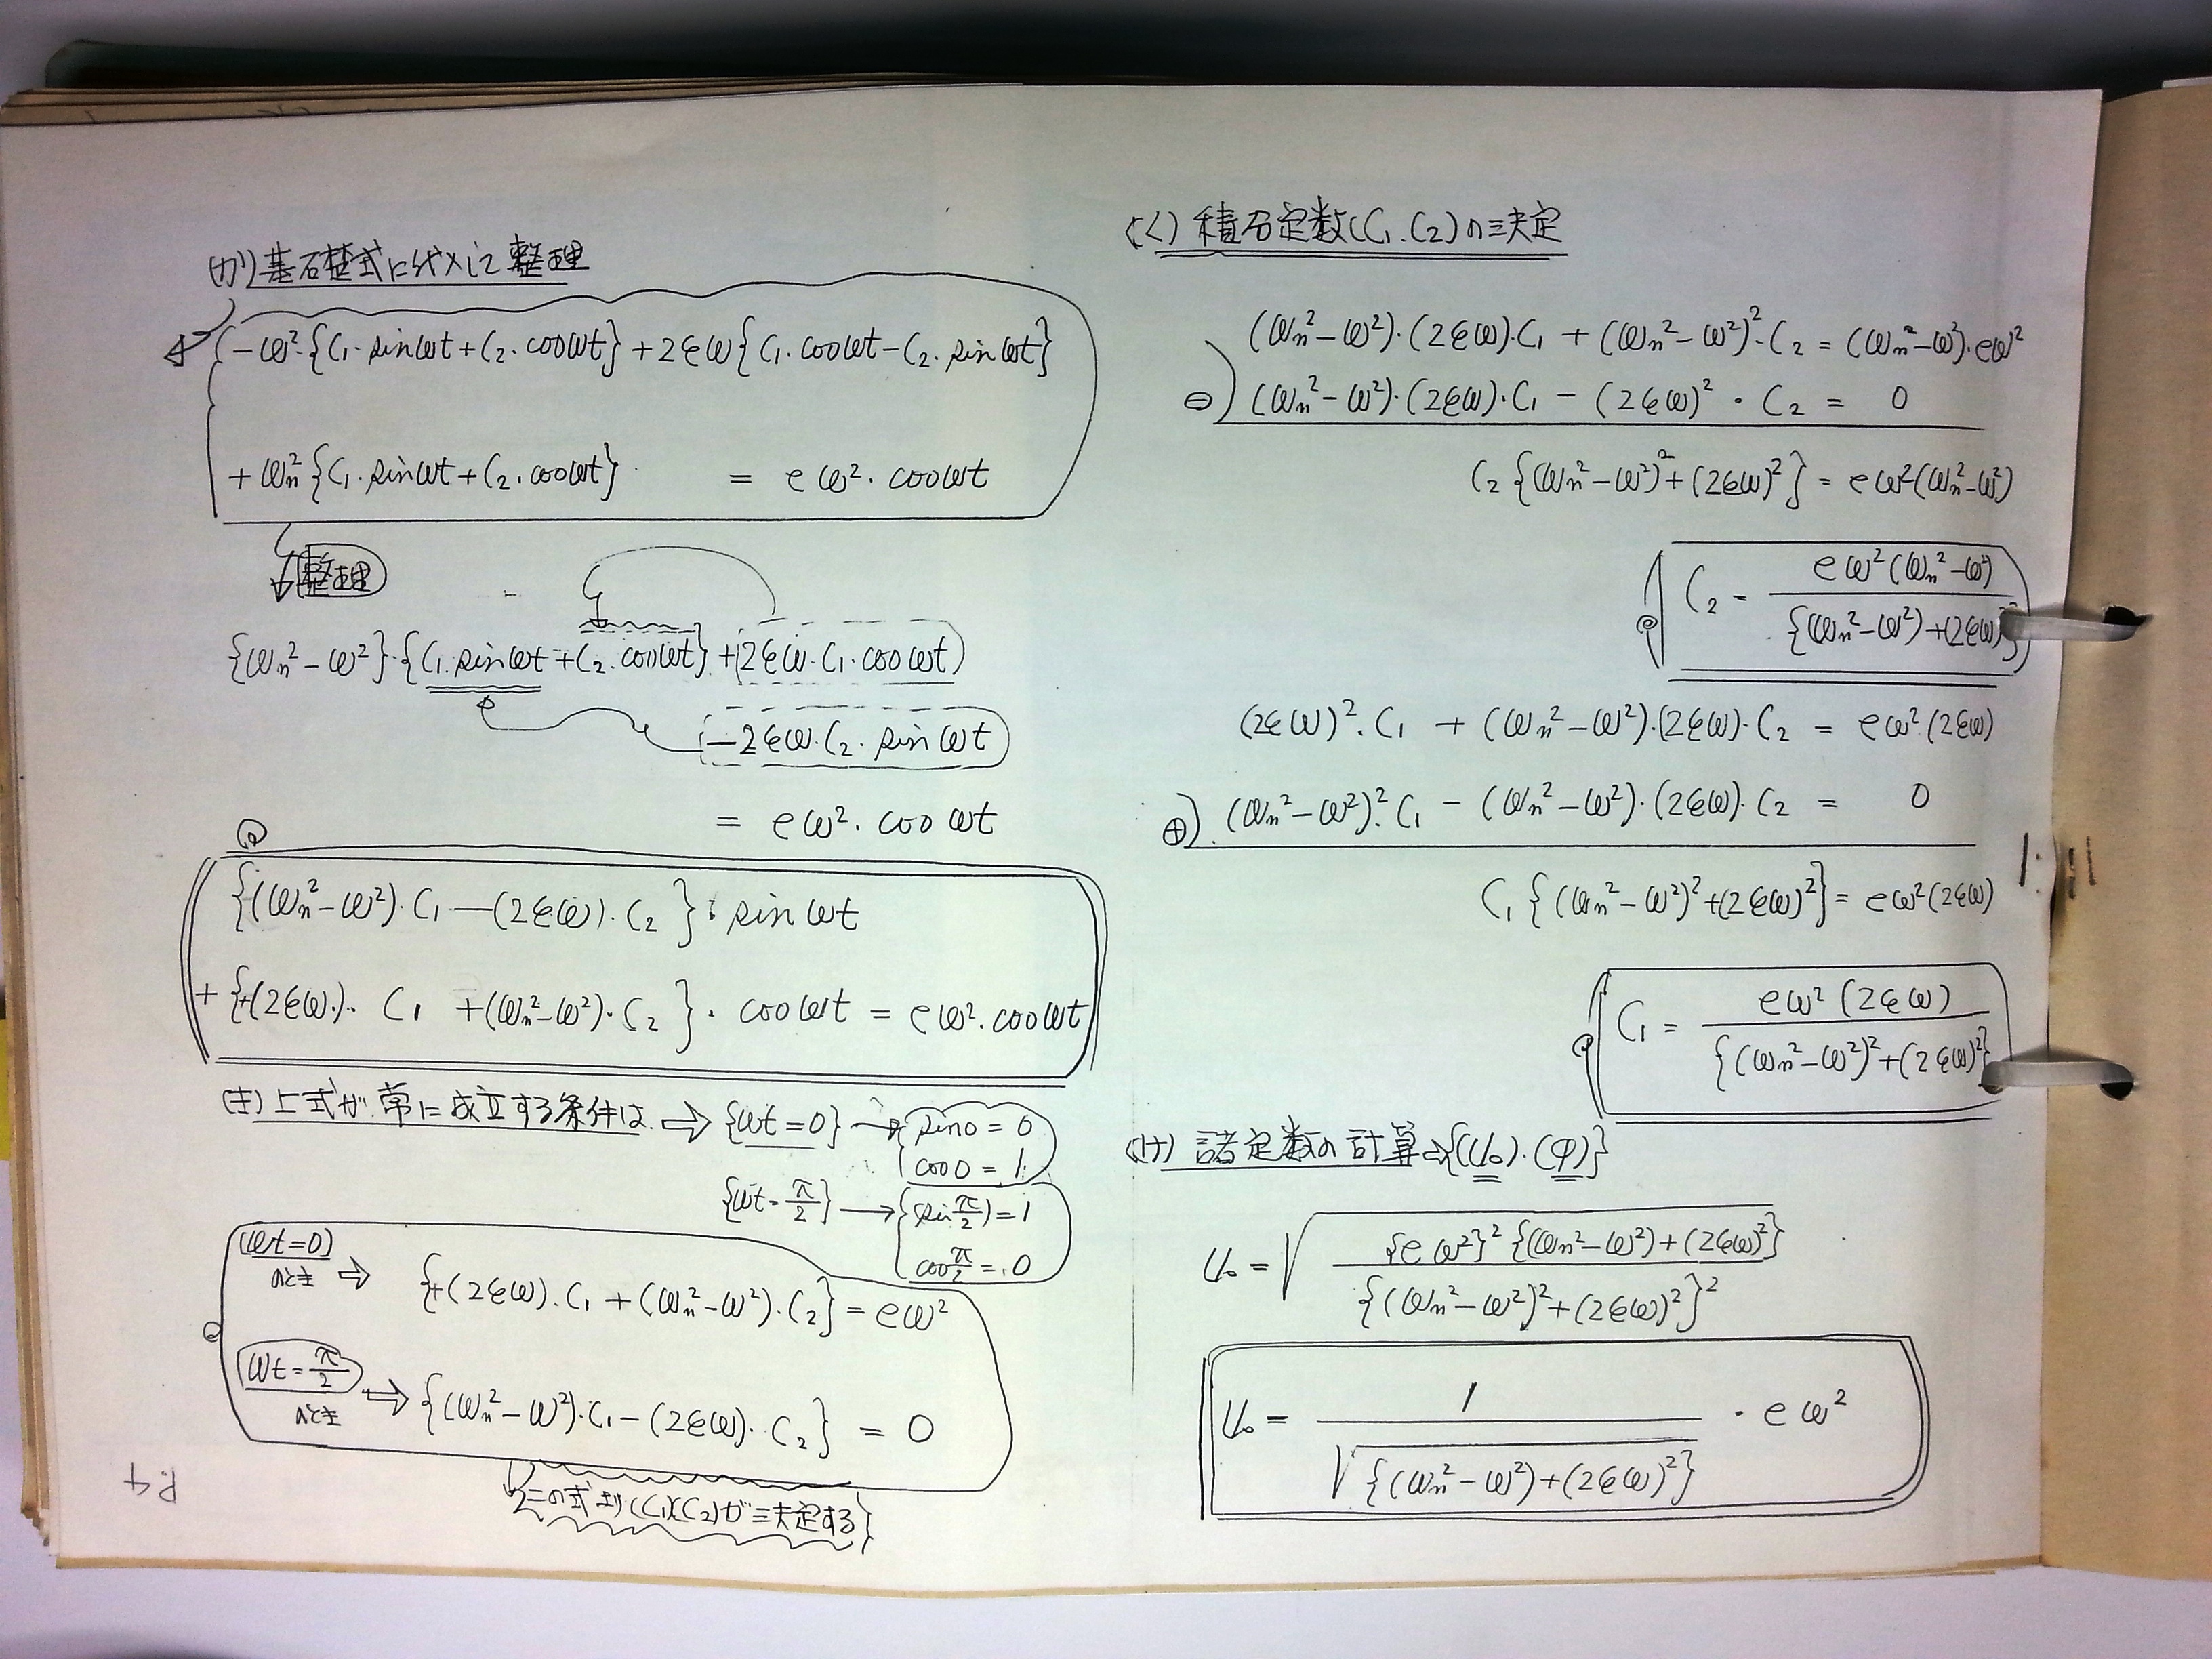 (カ) 基石楚式に代入して整理
-ω²·{C₁·sinωt+C₂·cosωt}+2εω{C₁·cosωt-C₂·sinωt}
+ωn²{C₁·sinωt+C₂·cosωt} = eω²·cosωt
整理
{ωn²-ω²}·{C₁·sinωt+C₂·cosωt}+(2εω·C₁·cosωt)
(-2εω·C₂·sinωt)
= eω²·cosωt
{(ωn²-ω²)·C₁-(2εω)·C₂}·sinωt
+{+(2εω)·C₁+(ωn²-ω²)·C₂}·cosωt = eω²·cosωt
(キ) 上式が常に成立する条件は ⇒ {ωt=0} → {sin0=0
cos0=1
{ωt=π/2} → {sin π/2)=1
cos π/2=0
(ωt=0)のとき ⇒ {+(2εω)·C₁+(ωn²-ω²)·C₂}=eω²
(ωt=π/2)のとき ⇒ {(ωn²-ω²)·C₁-(2εω)·C₂} = 0
この式より(C₁)(C₂)が決定する}
P.4
(ク) 積分定数(C₁.C₂)の決定
(ωn²-ω²)·(2εω)·C₁+(ωn²-ω²)²·C₂=(ωn²-ω²)·eω²
⊖) (ωn²-ω²)·(2εω)·C₁-(2εω)²·C₂ = 0
C₂{(ωn²-ω²)²+(2εω)²}=eω²(ωn²-ω²)
C₂ = eω²(ωn²-ω²) / {(ωn²-ω²)+(2εω)²}
(2εω)²·C₁+(ωn²-ω²)·(2εω)·C₂ = eω²·(2εω)
⊕) (ωn²-ω²)²·C₁-(ωn²-ω²)·(2εω)·C₂ = 0
C₁{(ωn²-ω²)²+(2εω)²}=eω²(2εω)
C₁ = eω²(2εω) / {(ωn²-ω²)²+(2εω)²}
(ケ) 諸定数の計算⇒{(U₀)·(φ)}
U₀ = √({eω²}²{(ωn²-ω²)+(2εω)²} / {(ωn²-ω²)²+(2εω)²}²)
U₀ = 1 / √{(ωn²-ω²)+(2εω)²} · eω²